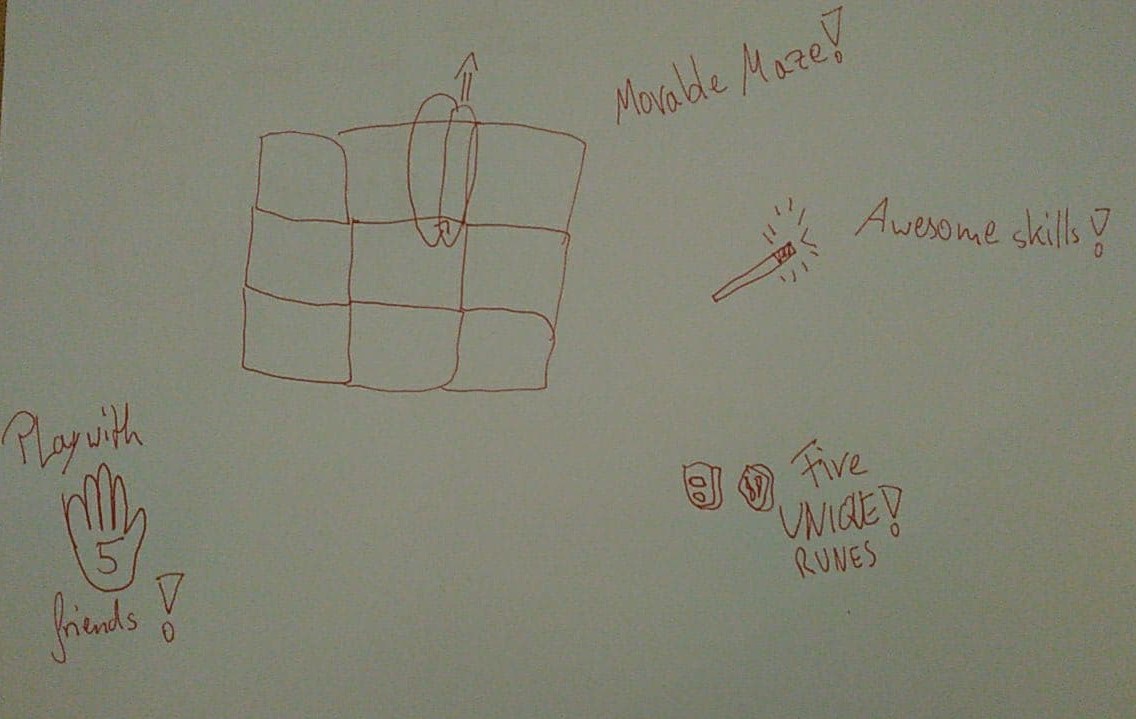 Movable Maze!
Awesome skills!
Play with
5
friends!
Five
UNIQUE!
RUNES